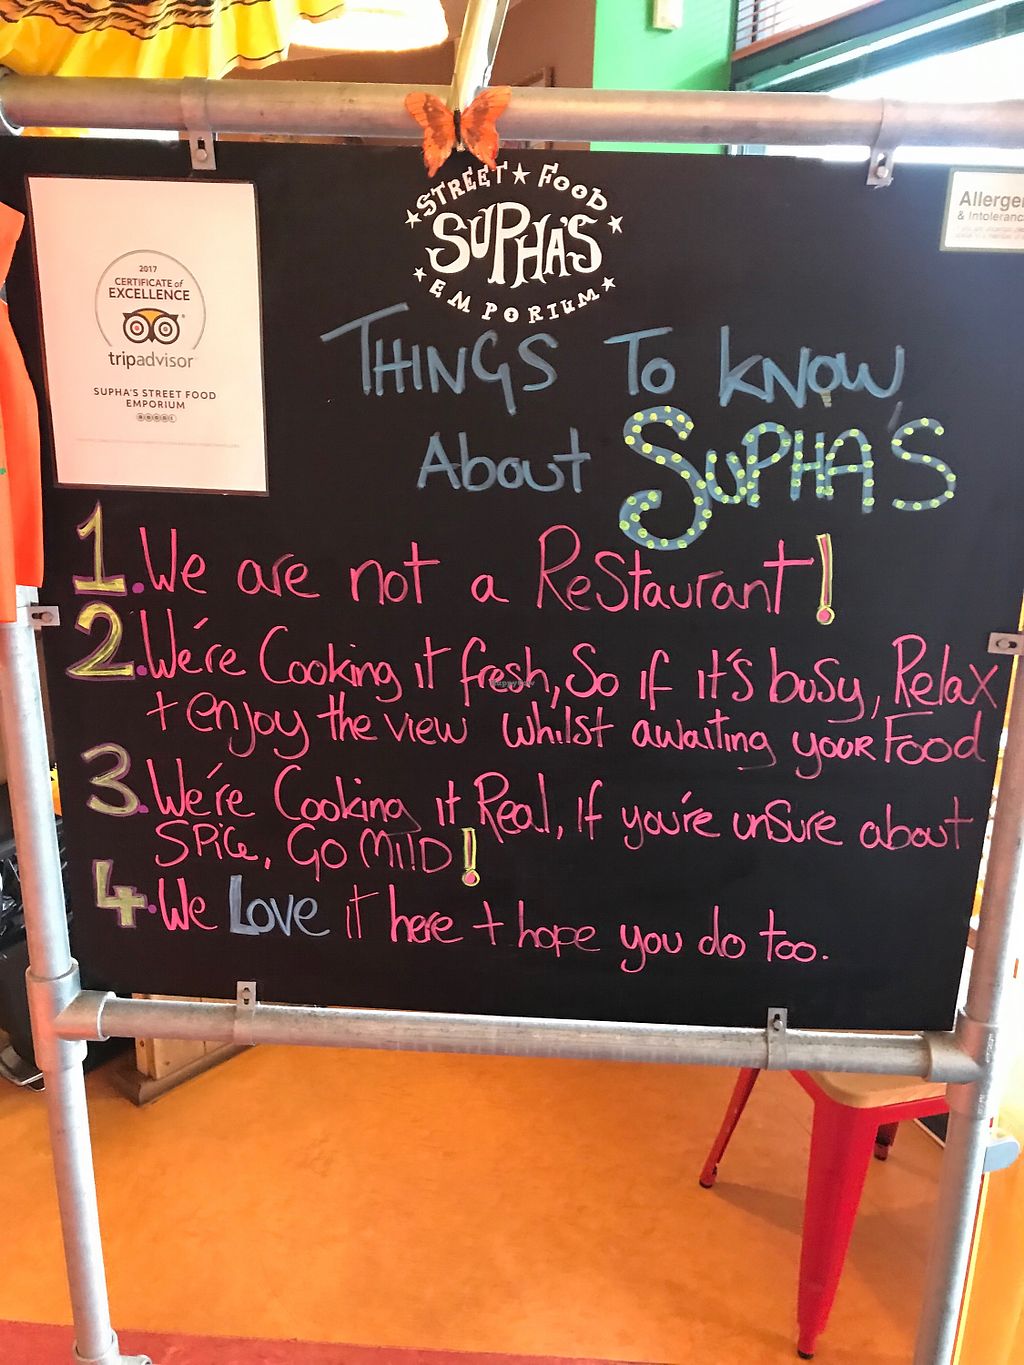 STREET ★ FOOD
SUPHA'S
EMPORIUM
Allerge
& Intoleranc
2017
CERTIFICATE of
EXCELLENCE
tripadvisor
SUPHA'S STREET FOOD
EMPORIUM
THINGS To kNOW
About SUPHA'S
1. We are not a ReStaurant!
2. We're Cooking it fresh, So if it's busy, Relax
+ enjoy the view whilst awaiting your Food
3. We're Cooking it Real, If you're unSure about
SPiCe, GO MilD!
4. We Love it here + hope you do too.